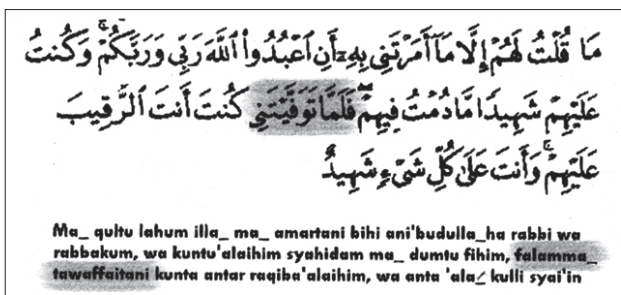 مَا قُلْتُ لَهُمْ إِلَّا مَآ أَمَرْتَنِى بِهِۦٓ أَنِ ٱعْبُدُوا۟ ٱللَّهَ رَبِّى وَرَبَّكُمْ ۚ وَكُنتُ
عَلَيْهِمْ شَهِيدًا مَّا دُمْتُ فِيهِمْ ۖ فَلَمَّا تَوَفَّيْتَنِى كُنتَ أَنتَ ٱلرَّقِيبَ
عَلَيْهِمْ ۚ وَأَنتَ عَلَىٰ كُلِّ شَىْءٍ شَهِيدٌ
Ma_ qultu lahum illa_ ma_ amartani bihi ani'budulla_ha rabbi wa
rabbakum, wa kuntu'alaihim syahidam ma_ dumtu fihim, falamma_
tawaffaitani kunta antar raqiba'alaihim, wa anta 'ala_/ kulli syai'in